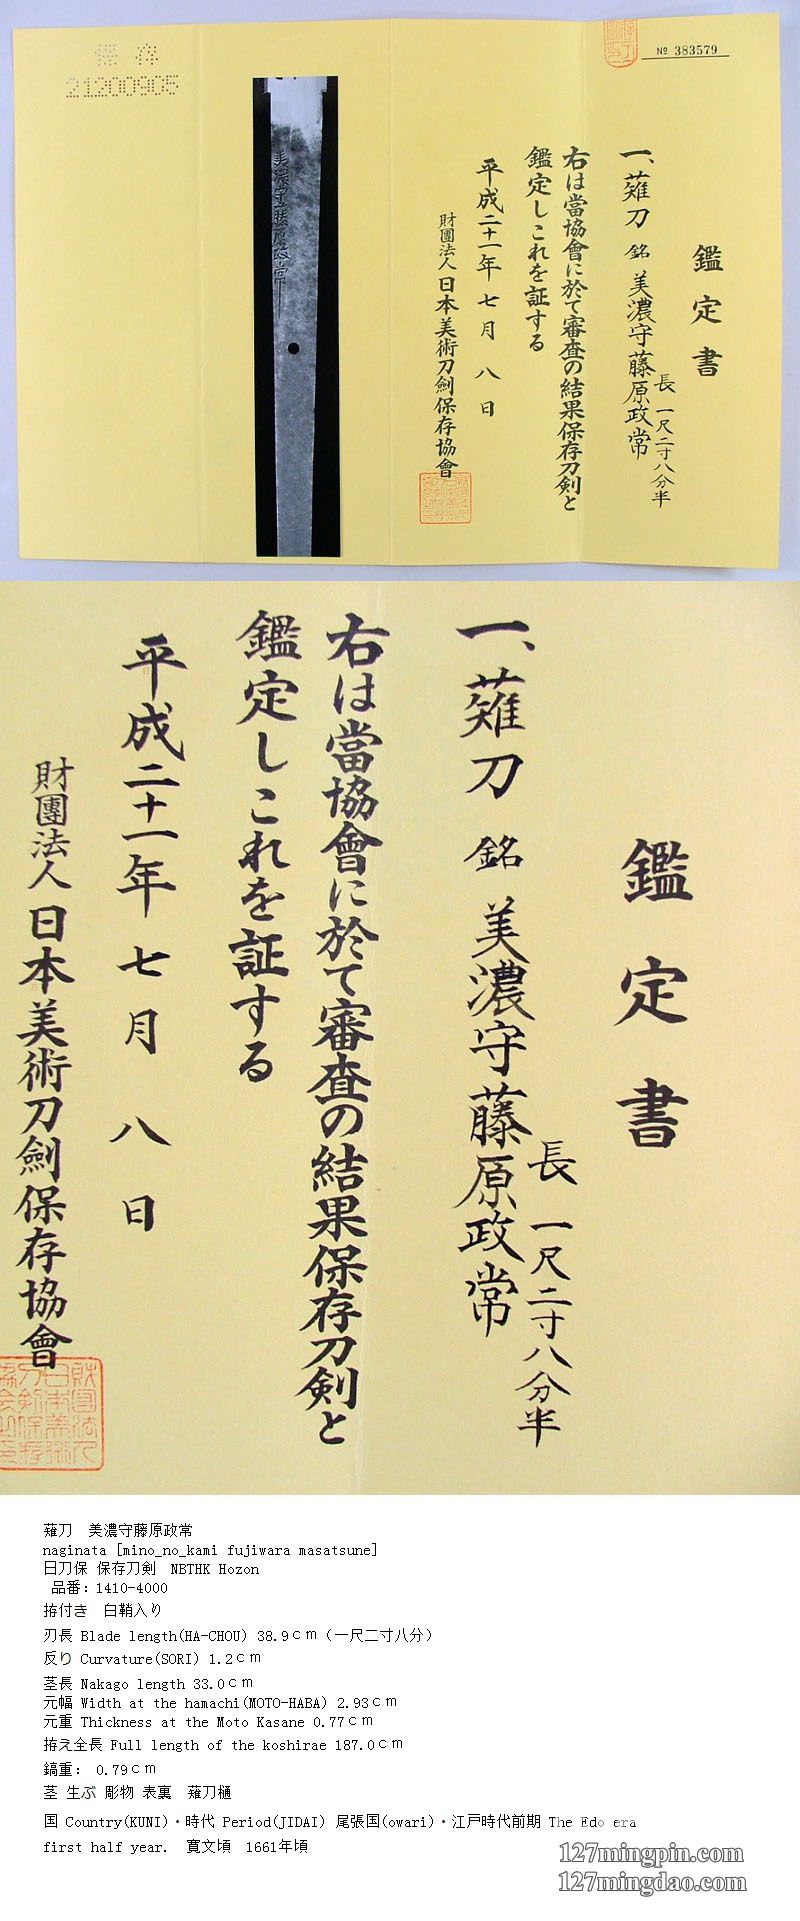 保存
21200905
№ 383579
鑑定書
一、薙刀 銘 美濃守藤原政常
長 一尺二寸八分半
右は當協會に於て審査の結果保存刀剣と
鑑定しこれを証する
平成二十一年 七月 八日
財團法人 日本美術刀劍保存協會
美濃守藤原政常
鑑定書
一、薙刀 銘 美濃守藤原政常
長 一尺二寸八分半
右は當協會に於て審査の結果保存刀剣と
鑑定しこれを証する
平成二十一年 七月 八日
財團法人 日本美術刀劍保存協會
薙刀　美濃守藤原政常
naginata [mino_no_kami fujiwara masatsune]
日刀保 保存刀剣　NBTHK Hozon
品番：1410-4000
拵付き　白鞘入り
刃長 Blade length(HA-CHOU) 38.9ｃｍ（一尺二寸八分）
反り Curvature(SORI) 1.2ｃｍ
茎長 Nakago length 33.0ｃｍ
元幅 Width at the hamachi(MOTO-HABA) 2.93ｃｍ
元重 Thickness at the Moto Kasane 0.77ｃｍ
拵え全長 Full length of the koshirae 187.0ｃｍ
鎬重： 0.79ｃｍ
茎 生ぶ 彫物 表裏　薙刀樋
国 Country(KUNI)・時代 Period(JIDAI) 尾張国(owari)・江戸時代前期 The Edo era
first half year.　寛文頃　1661年頃
127mingpin.com
127mingdao.com